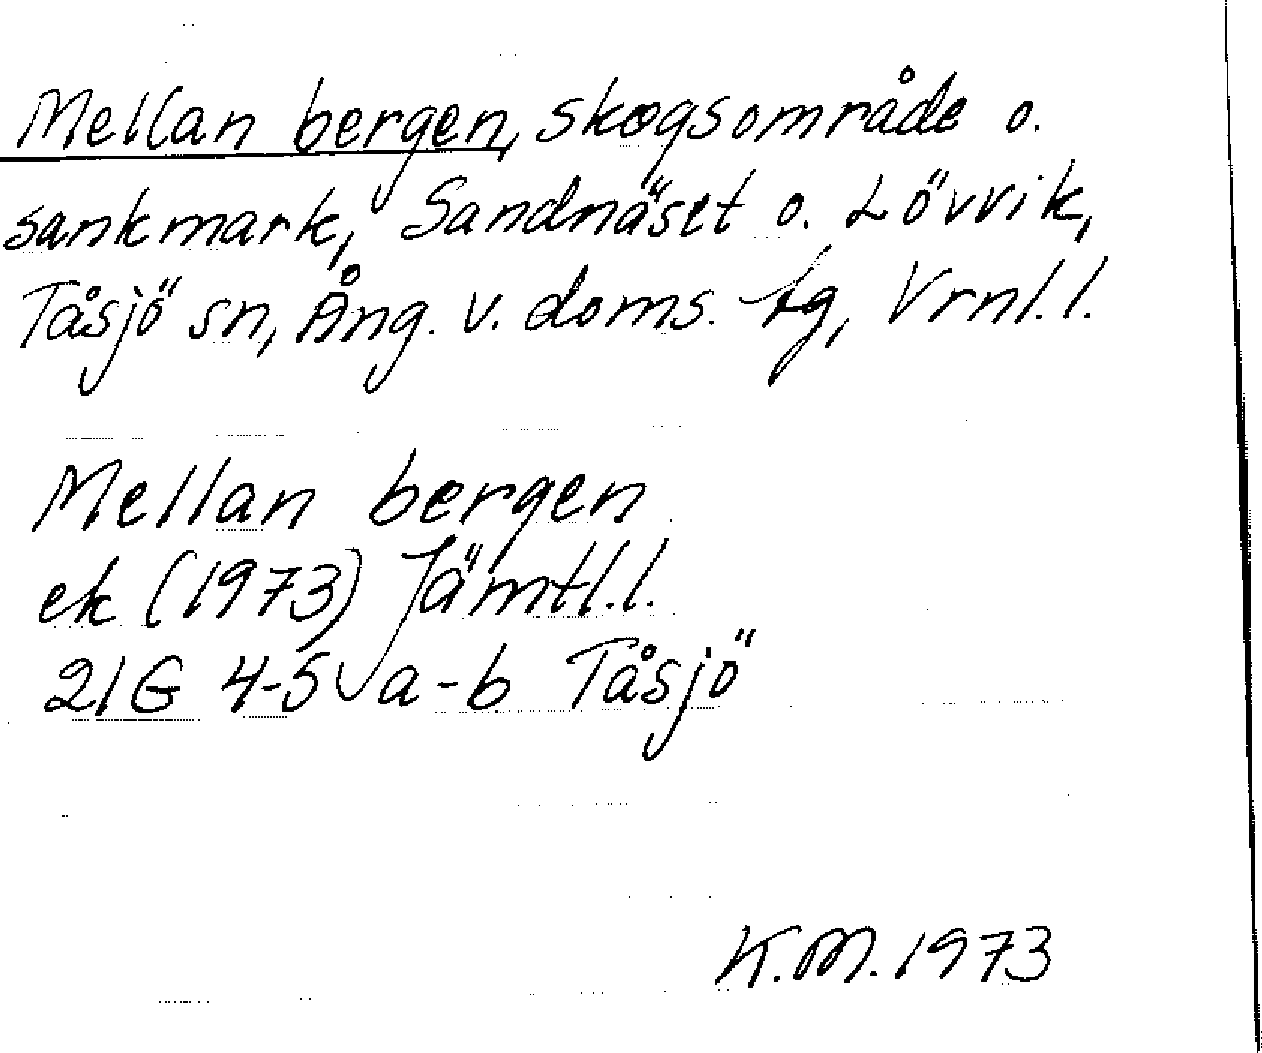 Mellan bergen, skogsområde o.
sankmark, Sandnäset o. Lövvik,
Tåsjö sn, Ång. v. doms. tg, Vrnl.l.
Mellan bergen
ek (1973) Jämtl.l.
21G 4-5 a-b Tåsjö
K.M. 1973